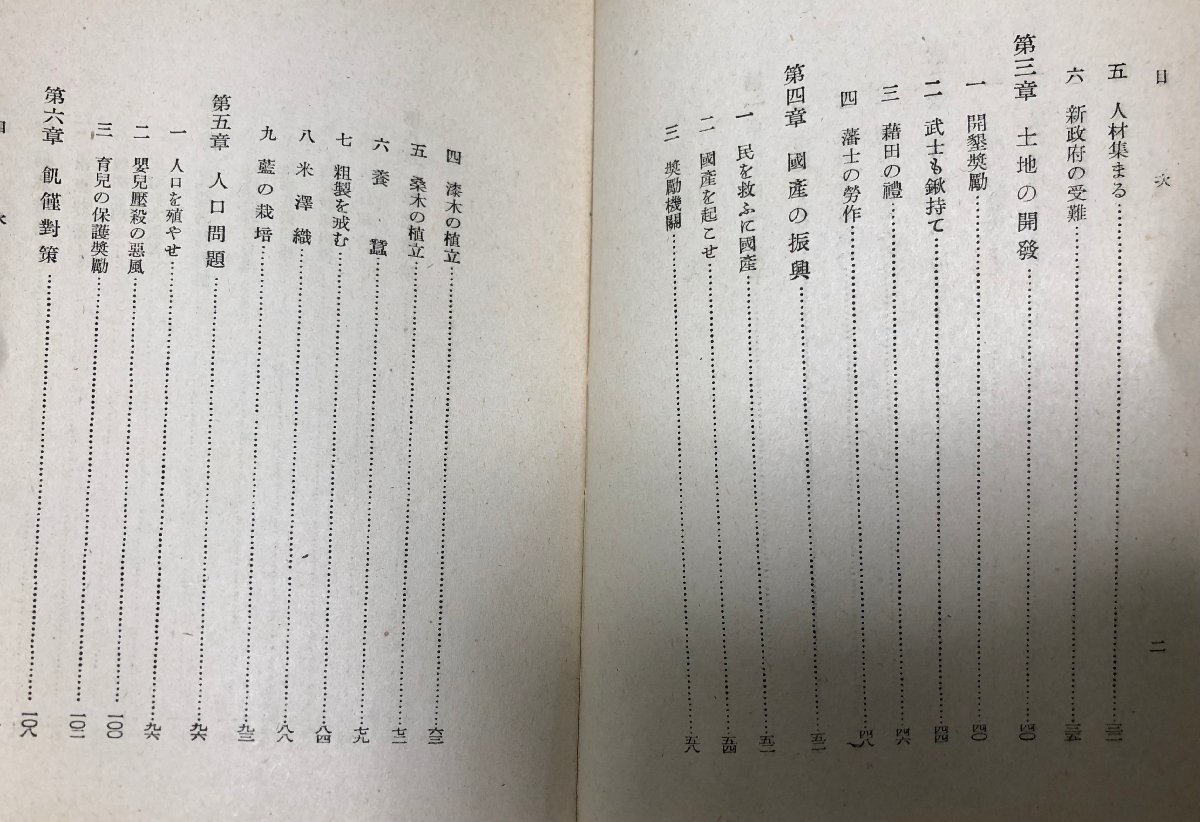 目次
二
五 人材集まる……三二
六 新政府の受難……三五
第三章 土地の開發……四〇
一 開墾奬勵……四〇
二 武士も鍬持て……四四
三 藉田の禮……四六
四 藩士の勞作……四八
第四章 國産の振興……五二
一 民を救ふに國産……五二
二 國産を起こせ……五四
三 奬勵機關……五八
四 漆木の植立……六三
五 桑木の植立……七二
六 養蠶……七九
七 粗製を戒む……八四
八 米澤織……八八
九 藍の栽培……九三
第五章 人口問題……九六
一 人口を殖やせ……九六
二 嬰兒壓殺の惡風……一〇〇
三 育兒の保護奬勵……一〇二
第六章 飢僅對策……一〇八